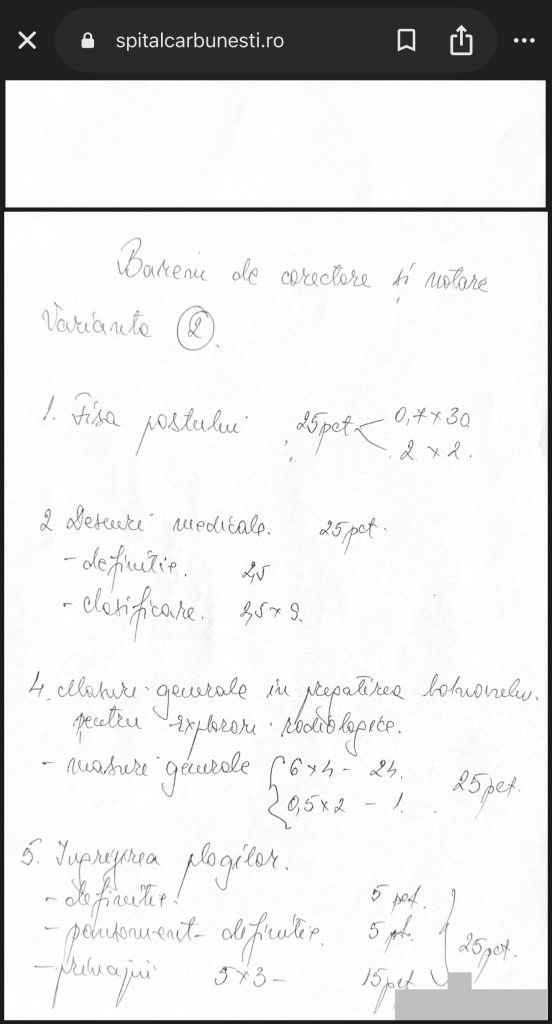 spitalcarbunesti.ro
Barem de corectare si notare
Varianta 2.
1. Fisa postului 25pct 0,7 x 30
2 x 2.
2 Deseuri medicale. 25pct.
- definitie. 2,5
- clasificare. 2,5 x 9.
4. Masuri generale in pregatirea bolnavului.
pentru explorari radiologice.
- masuri generale 6 x 4 - 24.
0,5 x 2 - 1. 25pct.
5. Ingrijirea plagilor.
- definitie. 5 pct.
- pansament - definitie. 5 pt.
- principii 5 x 3 - 15pct 25pct.